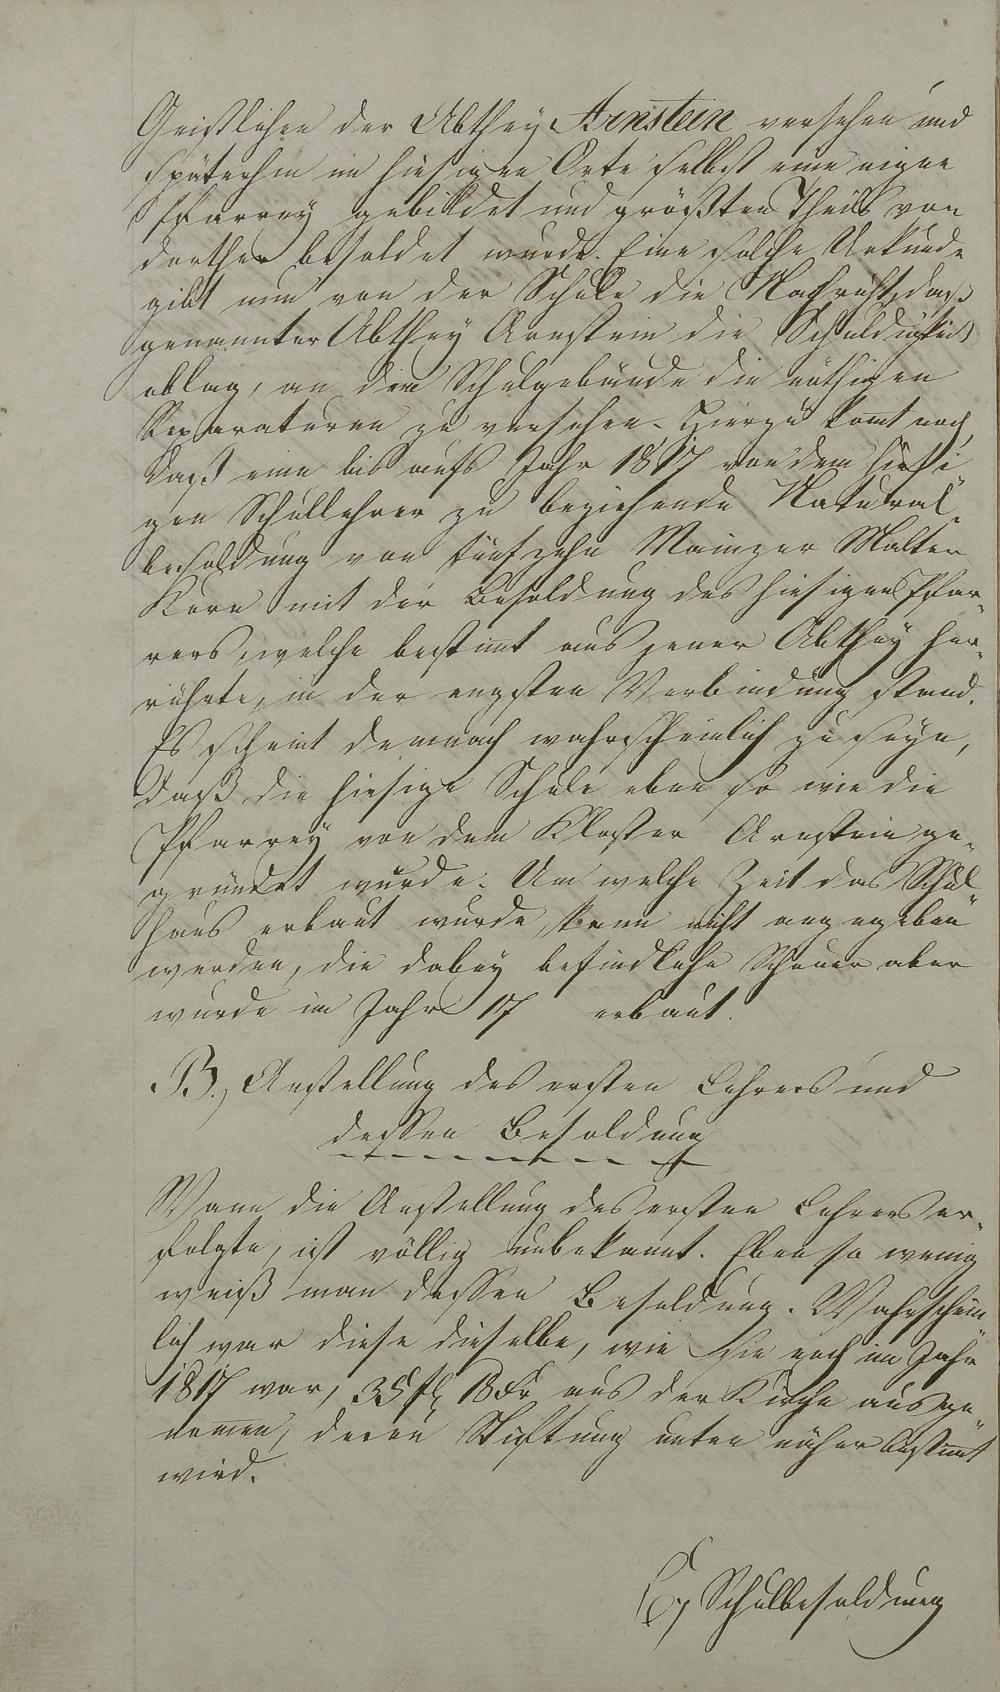 Geistlichen der Abthey Arnstein versehen und
späterhin im hiesigen Orte selbst eine eigne
Pfarrey gebildet und größten Theils von
dorther besoldet wurde. Eine solche Urkunde
gibt nun von der Schule die Nachricht, daß
genannter Abthey Arnstein die Schuldigkeit
oblag, an dem Schulgebäude die nöthigen
Reparaturen zu versehen. Hierzu komt noch,
daß eine bis aufs Jahr 1817 von dem hiesi
gen Schullehrer zu beziehende Natural-
besoldung von fünfzehn Mainzer Malter
Korn mit der Besoldung des hiesigen Pfar-
rers, welche bestimt aus jener Abthey her-
rührte, in der engsten Verbindung stand.
Es scheint demnach wahrscheinlich zu seyn,
daß die hiesige Schule eben so wie die
Pfarrey von dem Kloster Arnstein ge-
gründet wurde. Um welche Zeit das Schul-
haus erbaut wurde, kann nicht angegeben
werden, die dabey befindliche Scheuer aber
wurde im Jahr 17 erbaut.
B., Anstellung des ersten Lehrers und
dessen Besoldung
Wann die Anstellung des ersten Lehrers er-
folgte, ist völlig unbekannt. Eben so wenig
weiß man dessen Besoldung. Wahrschein-
lich war diese dieselbe, wie sie noch im Jahr
1817 war, 35 fl 13 Xr aus der Kirche ausge-
nomen, deren Stiftung unten näher bestimt
wird.
C, Schulbesoldung